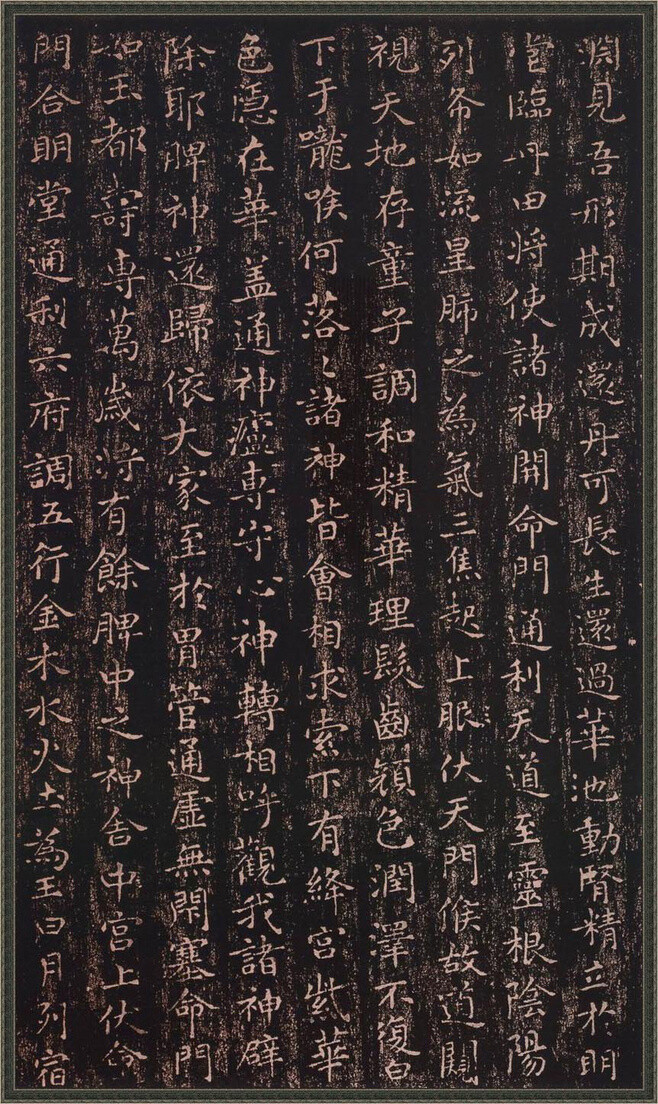 淵見吾形期成還丹可長生還過華池動腎精立於明
堂臨丹田将使諸神開命門通利天道至靈根陰陽
列布如流星肺之為氣三焦起上服伏天門候故道闚
視天地存童子調和精華理髮齒顏色潤澤不復白
下于嚨喉何落〻諸神皆會相求索下有絳宮紫華
色隱在華盖通神廬專守心神轉相呼觀我諸神辟
除耶脾神還歸依大家至於胃管通虛無閇塞命門
如玉都壽専萬歲将有餘脾中之神舍中宮上伏命
門合明堂通利六府調五行金木水火土為王日月列宿